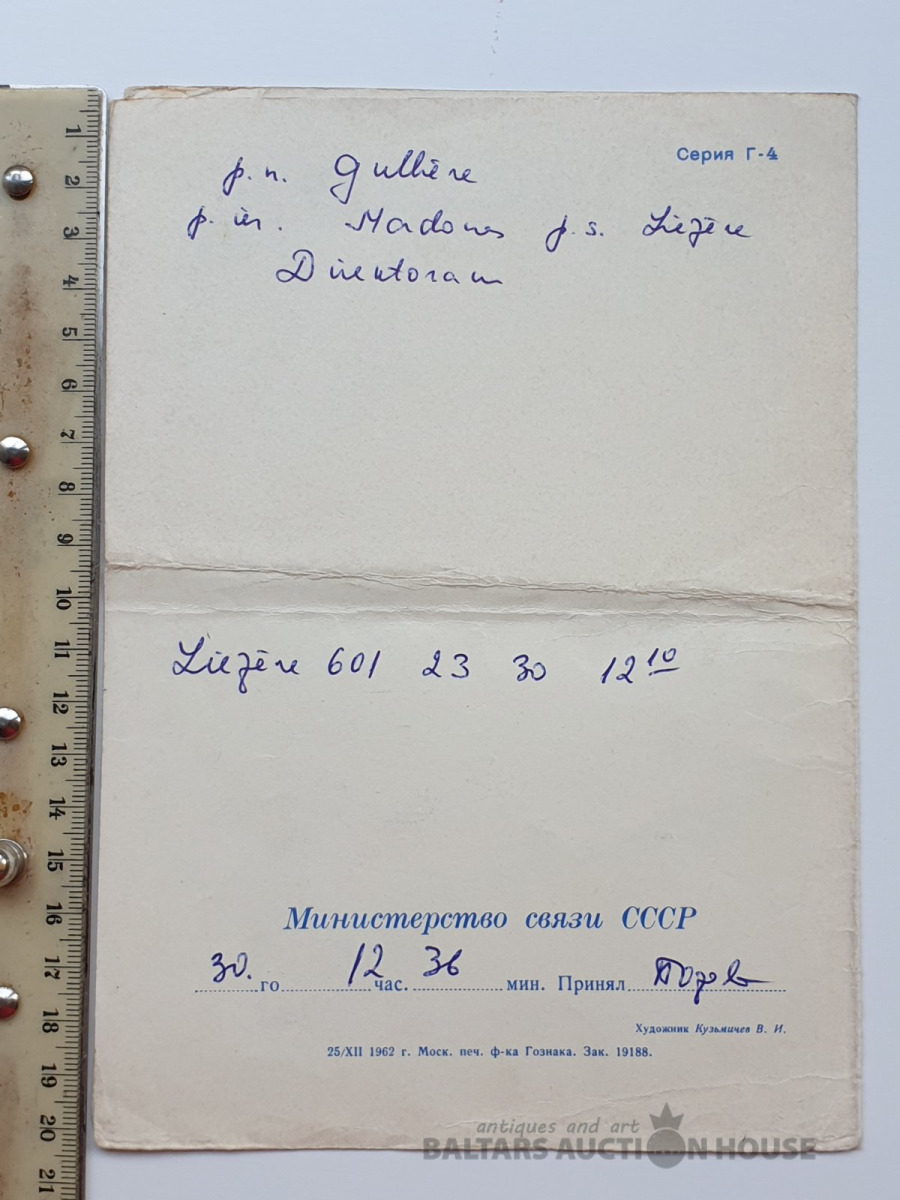 Серия Г-4
p. n. Gulbēne
p. ier. Madonas p. s. Liezēre
Direktoram
Liezēre 601 23 30 12 10
Министерство связи СССР
30. го 12 час. 36 мин. Принял
Художник Кузьмичев В. И.
25/XII 1962 г. Моск. печ. ф-ка Гознака. Зак. 19188.
antiques and art
BALTARS AUCTION HOUSE
1
2
3
4
5
6
7
8
9
10
11
12
13
14
15
16
17
18
19
20
21